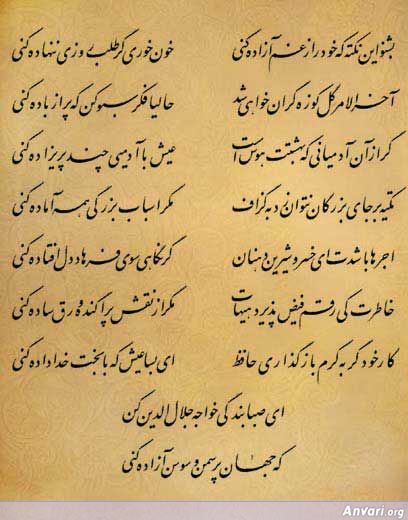 بشنو این نکته که خود را ز غم آزاده کنی خون خوری گر طلب روزی ننهاده کنی
آخرالامر گل کوزه گران خواهی شد حالیا فکر سبو کن که پر از باده کنی
گر از آن آدمیانی که بهشتت هوس است عیش با آدمیی چند پریزاده کنی
تکیه بر جای بزرگان نتوان زد به گزاف مگر اسباب بزرگی همه آماده کنی
اجرها باشدت ای خسرو شیرین دهنان گر نگاهی سوی فرهاد دل افتاده کنی
خاطرت کی رقم فیض پذیرد هیهات مگر از نقش پراگنده ورق ساده کنی
کار خود گر به کرم بازگذاری حافظ ای بسا عیش که با بخت خداداده کنی
ای صبا بندگی خواجه جلال الدین کن
که جهان پر سمن و سوسن آزاده کنی
Anvari.org